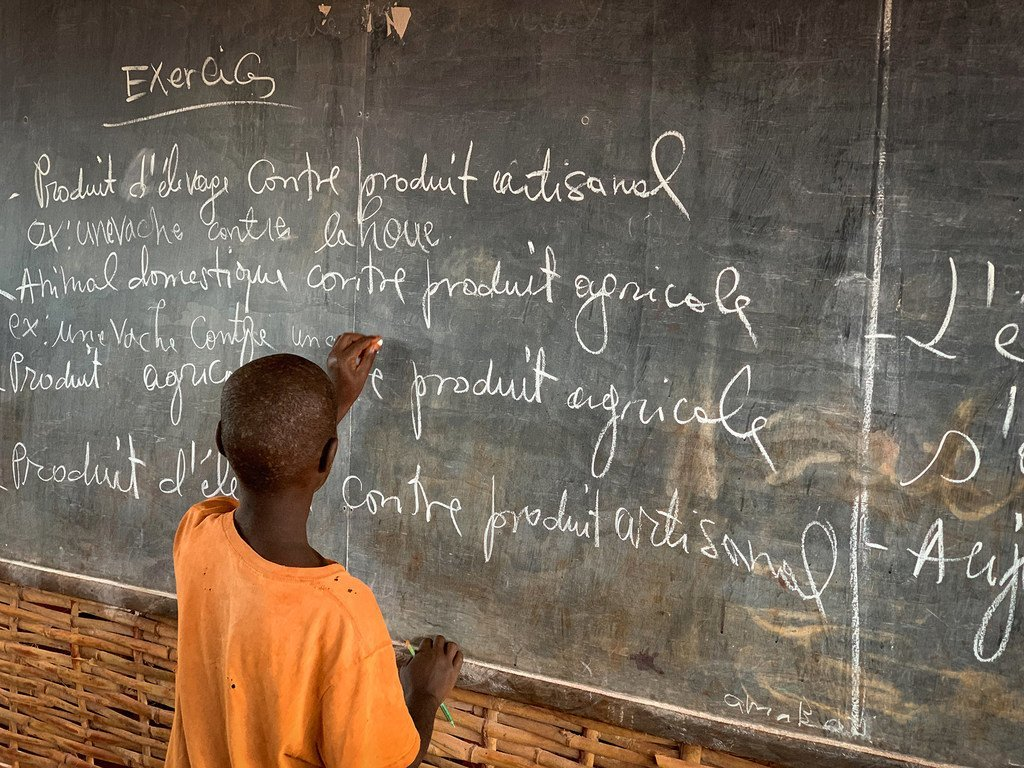 Exercice
- Produit d'élevage contre produit artisanal
ex: une vache contre la houe
- Animal domestique contre produit agricole
ex: une vache contre une
- Produit agric e produit agricole
- Produit d'éle contre produit artisanal
- L'
- Auj